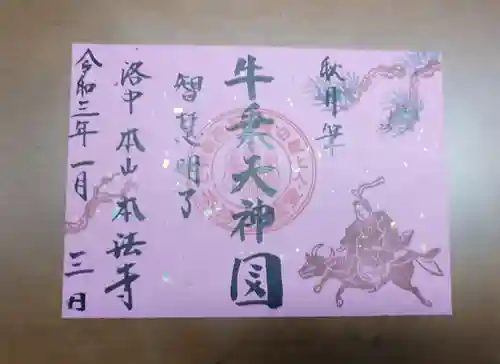 秋月筆
牛乗天神図
智慧明了
洛中 本山本法寺
令和三年一月三日